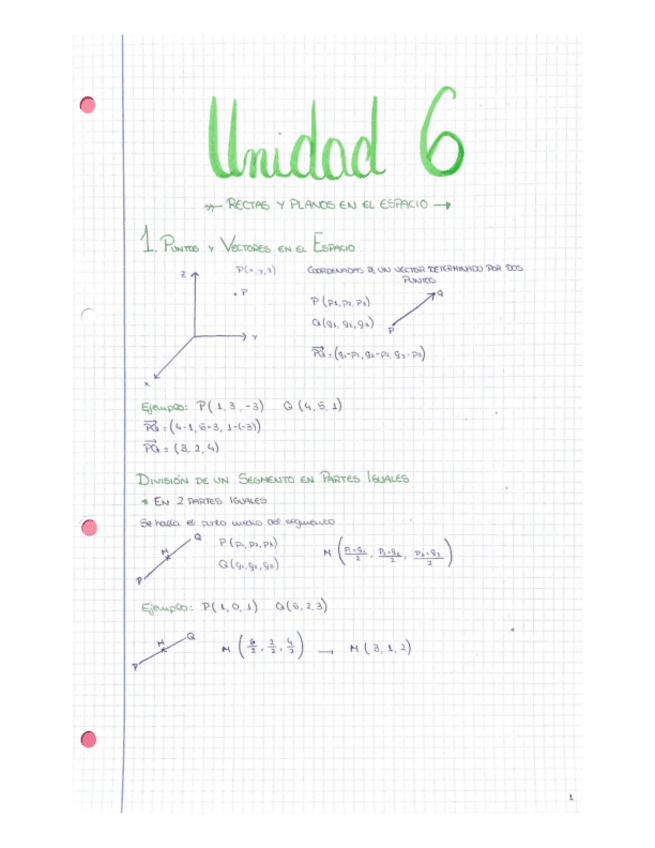 Unidad 6
RECTAS Y PLANOS EN EL ESPACIO
1. PUNTOS Y VECTORES EN EL ESPACIO
Z P(x, y, z) COORDENADAS DE UN VECTOR DETERMINADO POR DOS PUNTOS
· P
P(p₁, p₂, p₃) Q
Q(q₁, q₂, q₃) P
Y
PQ = (q₁-p₁, q₂-p₂, q₃-p₃)
X
Ejemplo: P(1, 3, -3) Q(4, 5, 1)
PQ = (4-1, 5-3, 1-(-3))
PQ = (3, 2, 4)
DIVISIÓN DE UN SEGMENTO EN PARTES IGUALES
* EN 2 PARTES IGUALES
Se halla el punto medio del segmento
P M Q P(p₁, p₂, p₃)
Q(q₁, q₂, q₃)
M(p₁+q₁/2, p₂+q₂/2, p₃+q₃/2)
Ejemplo: P(1, 0, 1) Q(5, 2, 3)
P M Q M(6/2, 2/2, 4/2) → M(3, 1, 2)
1